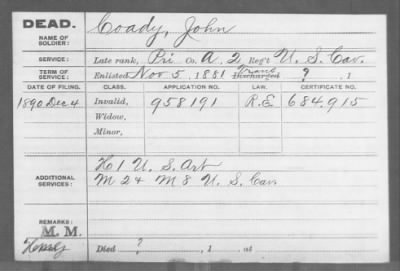 DEAD.
NAME OF SOLDIER:
Coady, John
SERVICE:
Late rank, Pri Co. A, 2 Reg't U. S. Cav.
TERM OF SERVICE:
Enlisted Nov 5, 1881 Discharged Trans ?, 1
DATE OF FILING. CLASS. APPLICATION NO. LAW. CERTIFICATE NO.
1890 Dec 4 Invalid, 958191 R.E 684,915
Widow,
Minor,
ADDITIONAL SERVICES:
H 1 U. S. Art
M 2 & M 8 U. S. Cav.
REMARKS:
M. M.
Died ?, 1 , at